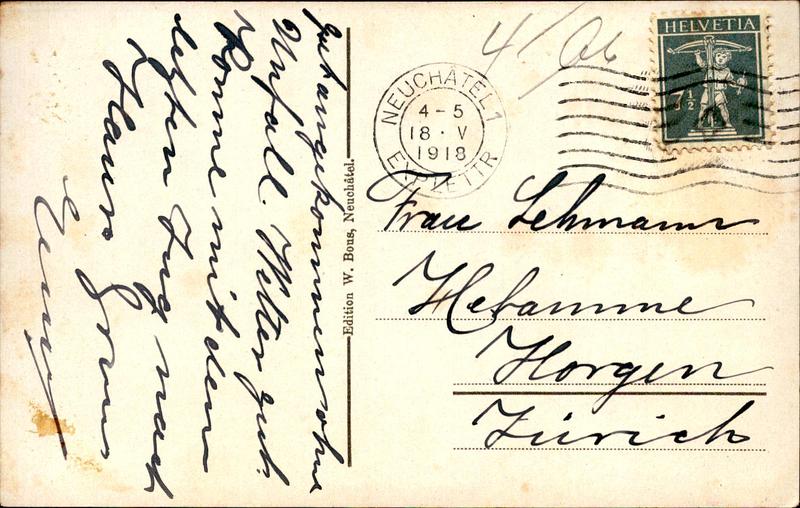 Gut angekommen ohne
Unfall. Wetter gut.
Komme mit dem
letzten Zug nach
Haus. Gruss
Edition W. Bous, Neuchâtel.
4/06
HELVETIA
7½
NEUCHÂTEL 1
4 - 5
18 · V
1918
EXP. LETTR
Frau Lehmann
Hebamme
Horgen
Zürich